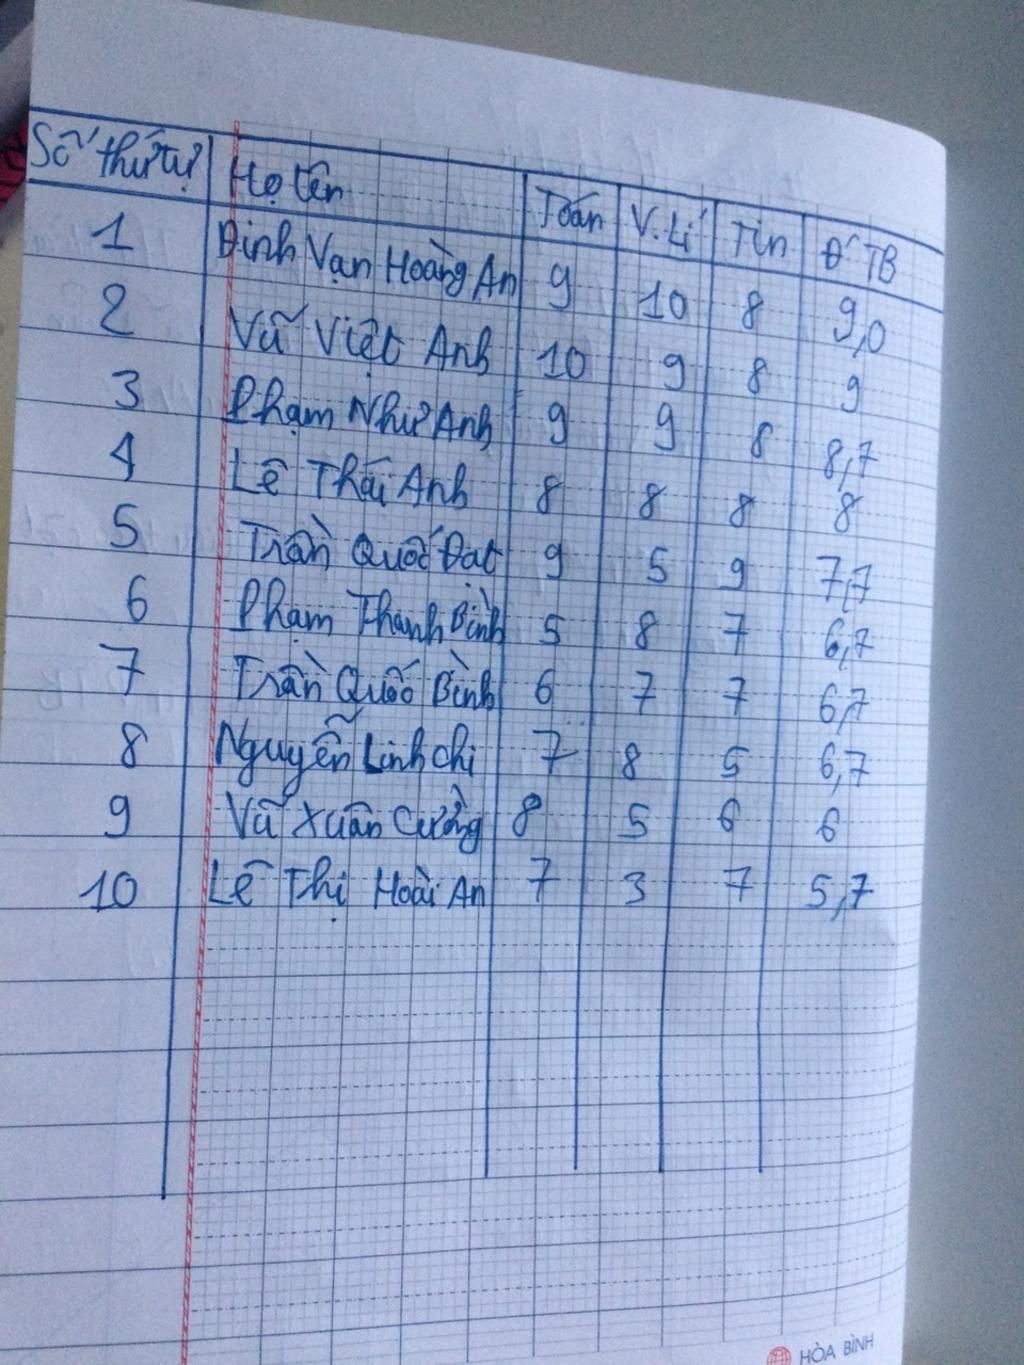 Số thứ tự Họ tên Toán V.Lí Tin Đ TB
1 Đinh Vạn Hoàng An 9 10 8 9,0
2 Vũ Việt Anh 10 9 8 9
3 Phạm Như Anh 9 9 8 8,7
4 Lê Thái Anh 8 8 8 8
5 Trần Quốc Đạt 9 5 9 7,7
6 Phạm Thanh Bình 5 8 7 6,7
7 Trần Quốc Bình 6 7 7 6,7
8 Nguyễn Linh Chi 7 8 5 6,7
9 Vũ Xuân Cường 8 5 6 6
10 Lê Thị Hoài An 7 3 7 5,7
HÒA BÌNH